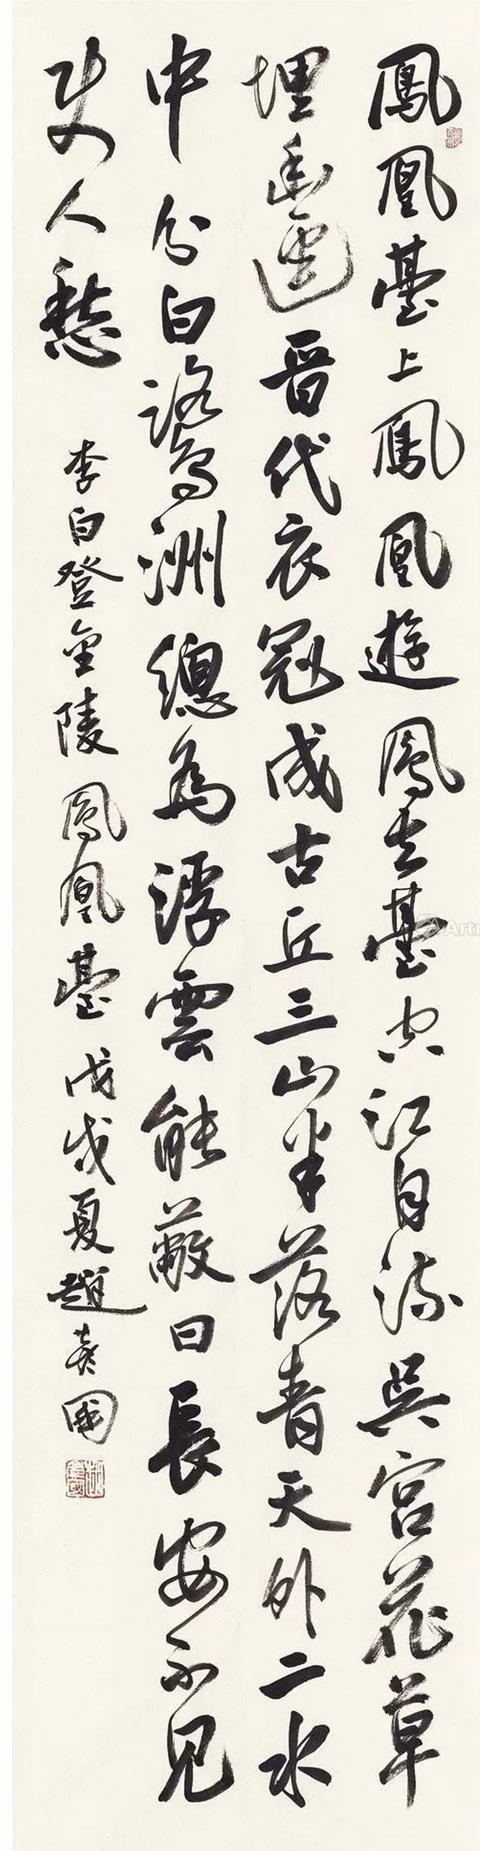 鳳凰臺上鳳凰遊鳳去臺空江自流吳宮花草
埋幽逕晉代衣冠成古丘三山半落青天外二水
中分白鷺洲總為浮雲能蔽日長安不見
使人愁 李白登金陵鳳凰臺 戊戌夏趙國